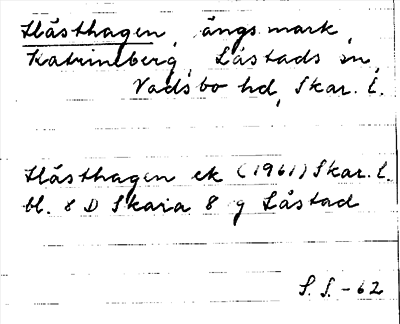 Hästhagen, ängsmark,
Katrineberg, Låstads sn,
Vadsbo hd, Skar. l.
Hästhagen ek (1961) Skar. l.
bl. 8 D Skara 8 g Låstad
S. S. -62